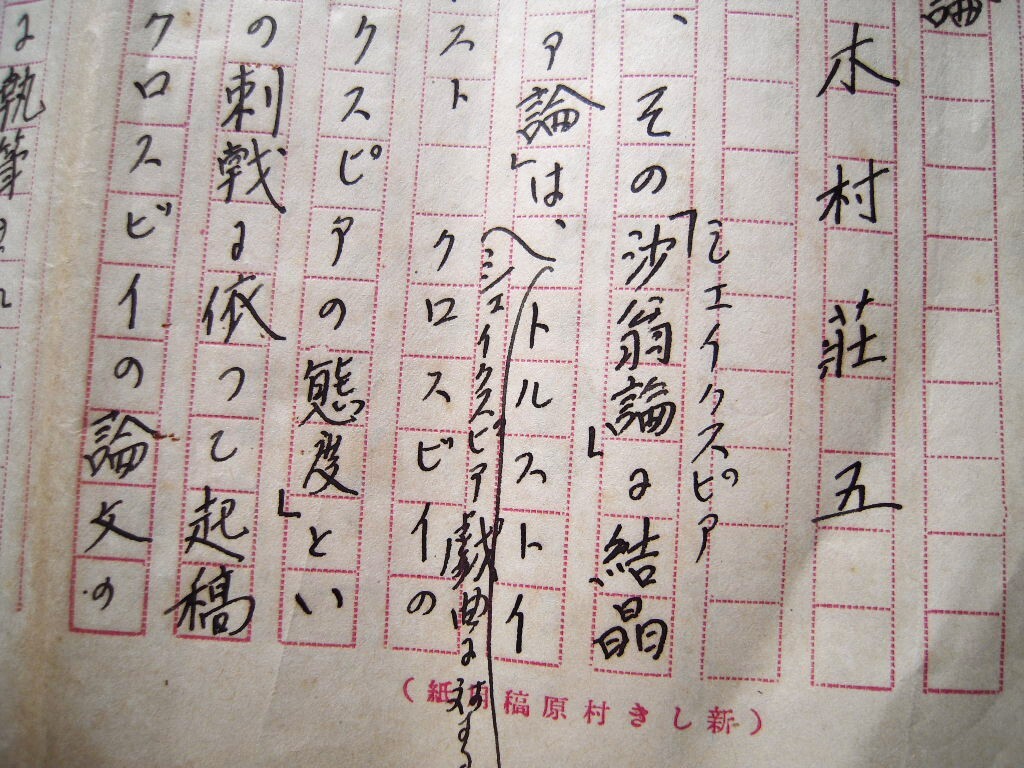 論
木村莊五
シエイクスピア
、その「沙翁論」に結晶
ア論」は、トルストイ
シェイクスピア戯曲に対する
スト　クロスビイの
クスピアの態度」とい
の刺戟に依つて起稿
クロスビイの論文の
に執筆
(新しき村原稿用紙)